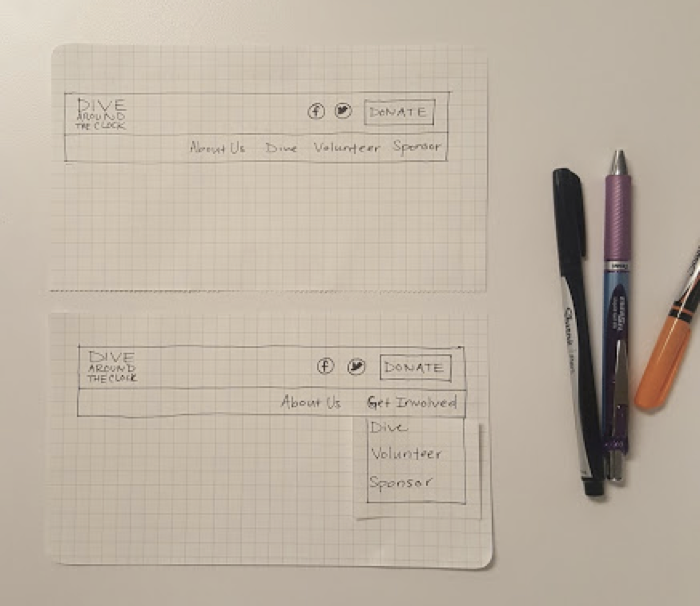 DIVE
AROUND
THE CLOCK
f DONATE
About Us Dive Volunteer Sponsor
DIVE
AROUND
THE CLOCK
f DONATE
About Us Get Involved
Dive
Volunteer
Sponsor
Sharpie